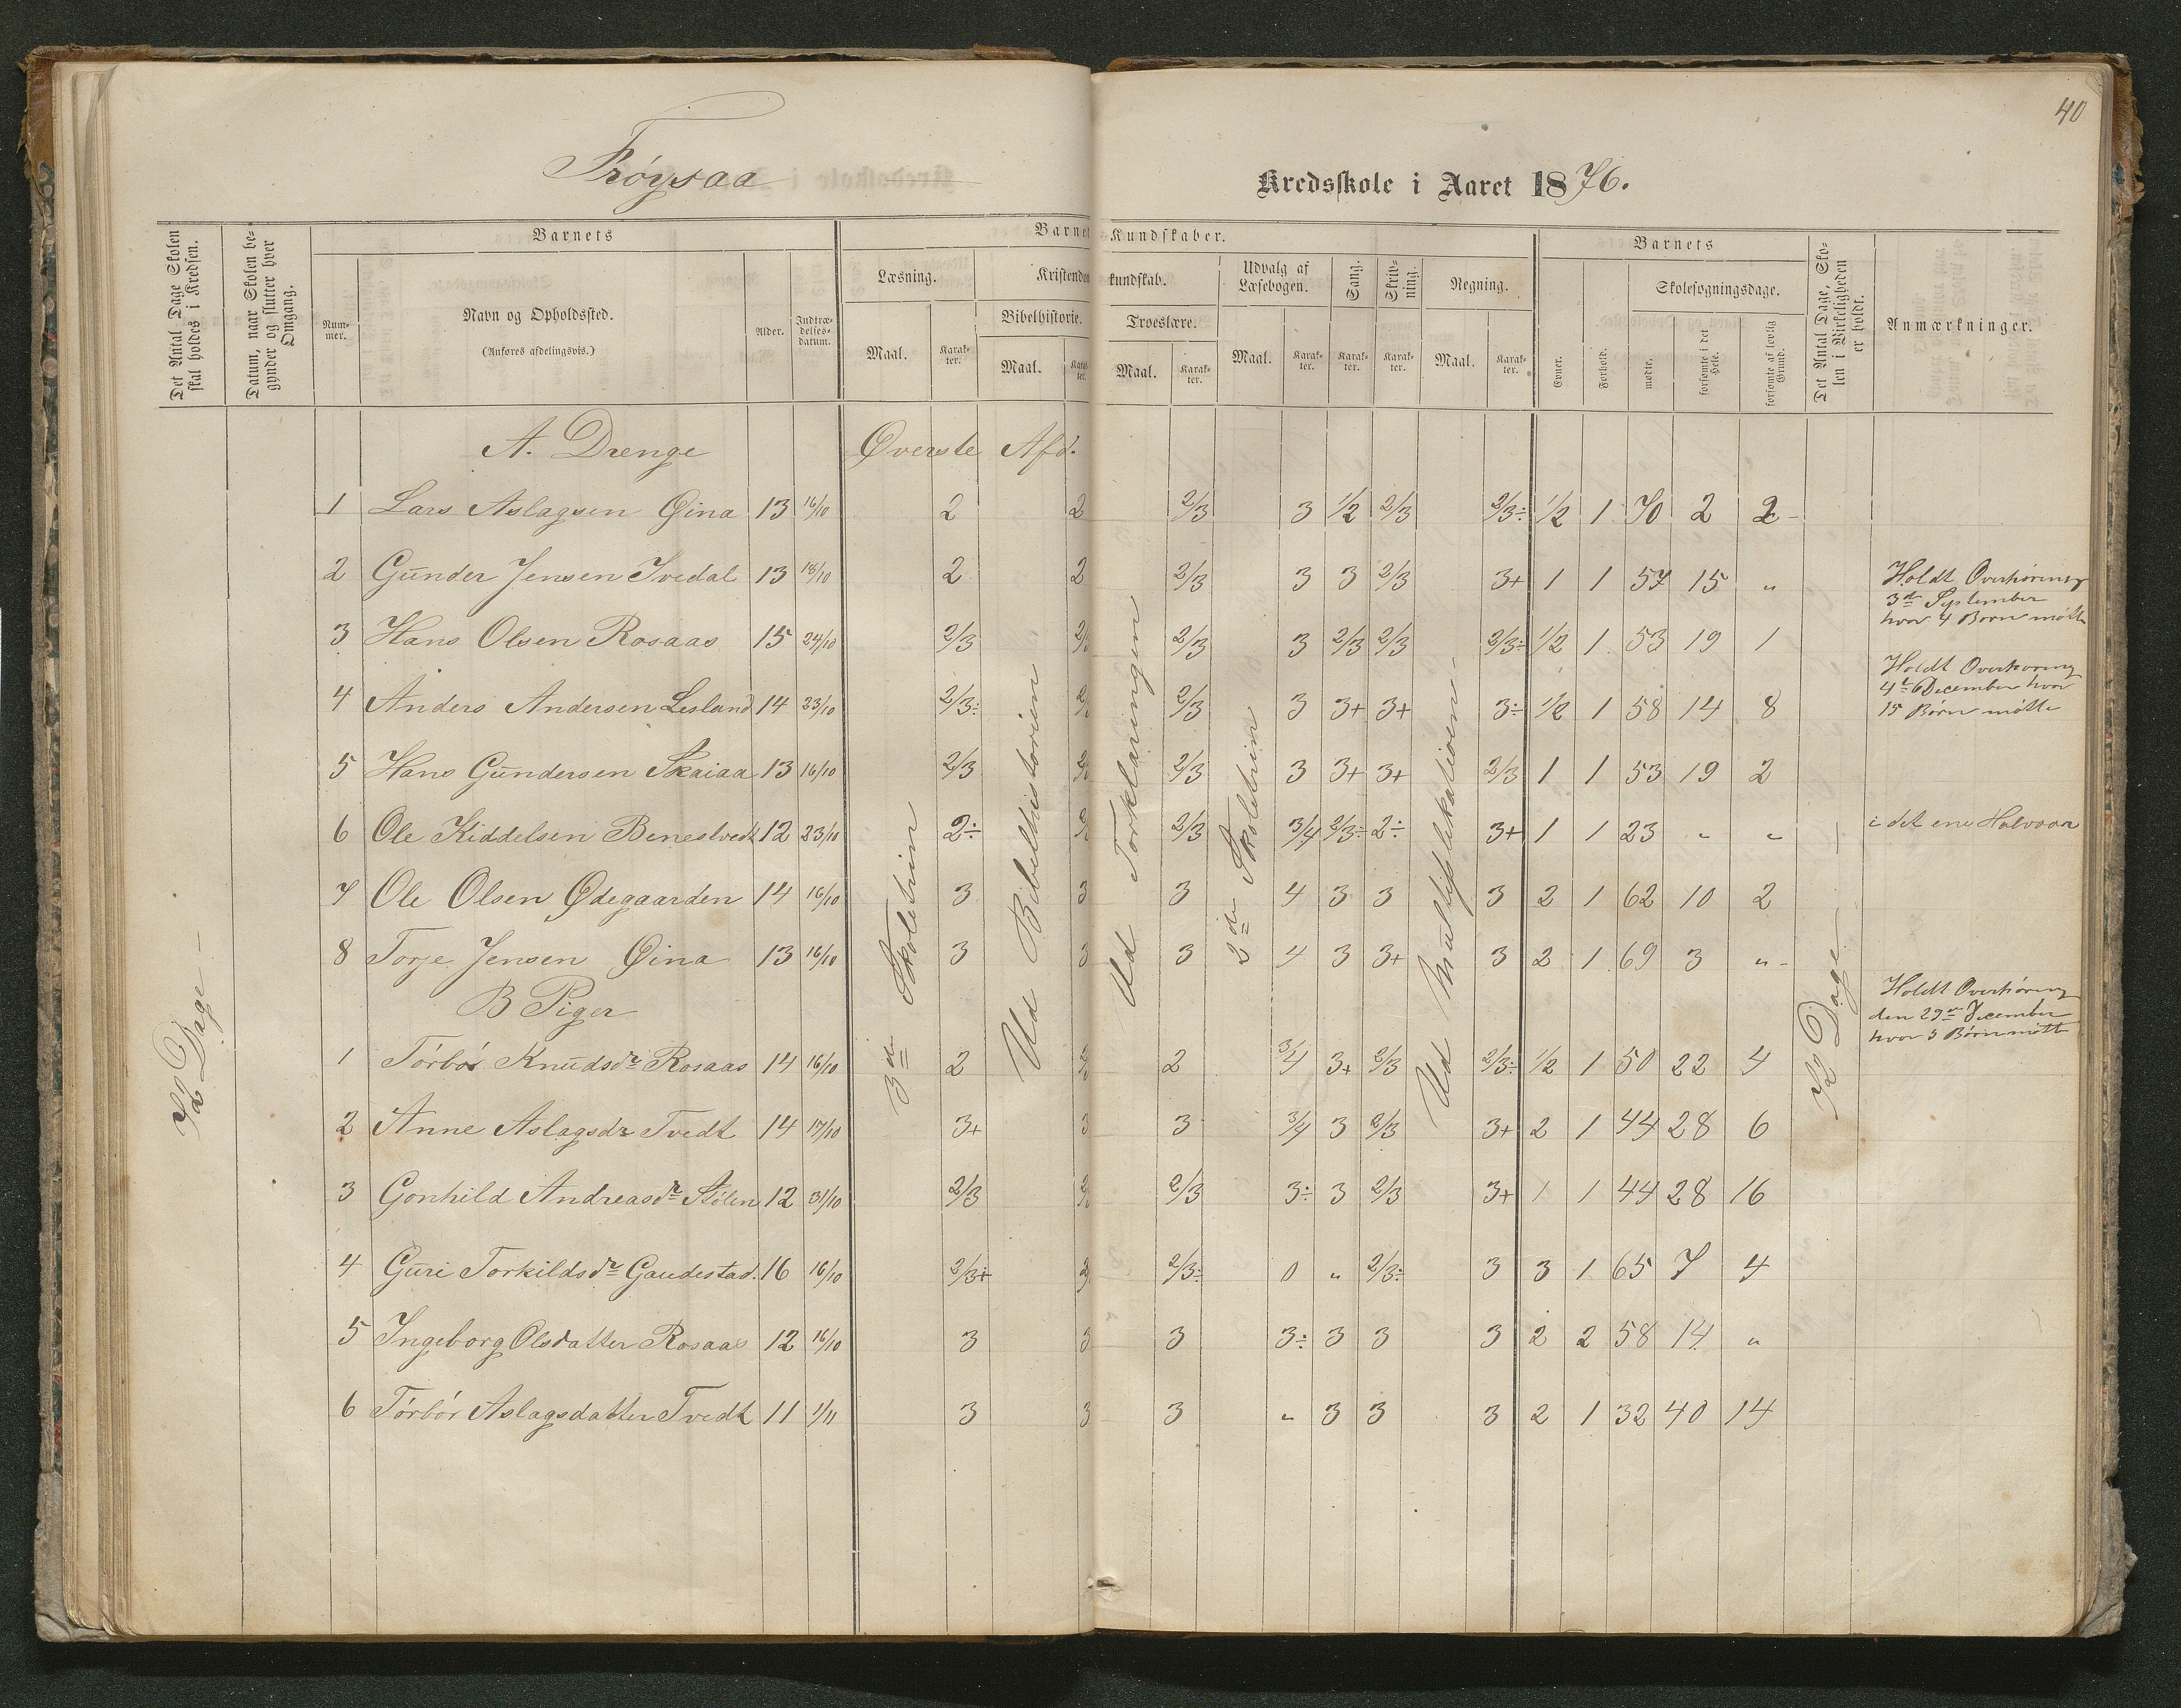 40
Frøysaa Kredsskole i Aaret 1876.
Det Antal Dage Skolen skal holdes i Kredsen.
Datum, naar Skolen begynder og slutter hver Omgang.
Barnets
Nummer.
Navn og Opholdssted.
(Anføres afdelingsvis.)
Alder.
Indtrædelsesdatum.
Barnets Kundskaber.
Læsning.
Maal. Karakter.
Kristendomskundskab.
Bibelhistorie.
Maal. Karakter.
Troeslære.
Maal. Karakter.
Udvalg af Læsebogen.
Maal. Karakter.
Sang.
Karakter.
Skrivning.
Karakter.
Regning.
Maal. Karakter.
Barnets
Evner.
Forhold.
Skolesøgningsdage.
mødte.
forsømte i det Hele.
forsømte af lovlig Grund.
Det Antal Dage, Skolen i Virkeligheden er holdt.
Anmærkninger.
A. Drenge Øverste Afd.
1 Lars Aslagsen Øina 13 16/10 2 2 2/3 3 1/2 2/3 2/3÷ 1/2 1 70 2 2
2 Gunder Jensen Ivedal 13 18/10 2 2 2/3 3 3 2/3 3+ 1 1 57 15 "
3 Hans Olsen Rosaas 15 24/10 2/3 2/3 2/3 3 2/3 2/3 2/3÷ 1/2 1 53 19 1
4 Anders Andersen Lesland 14 23/10 2/3÷ 2/3 2/3 3 3+ 3+ 3÷ 1/2 1 58 14 8
5 Hans Gundersen Skaiaa 13 16/10 2/3 2/3 2/3 3 3+ 3+ 2/3 1 1 53 19 2
6 Ole Kiddelsen Benestvedt 12 23/10 2÷ 2/3 2/3 3/4 2/3÷ 2÷ 3+ 1 1 23 " " i det ene Halvaar
7 Ole Olsen Ødegaarden 14 16/10 3 3 3 4 3 3 3 2 1 62 10 2
8 Torje Jensen Øina 13 16/10 3 3 3 4 3 3+ 3 2 1 69 3 "
B Piger
1 Tørbør Knudsdr Rosaas 14 16/10 2 2/3 2 3/4 3+ 2/3 2/3÷ 1/2 1 50 22 4
2 Anne Aslagsdr Tvedt 14 17/10 3+ 3 3 3/4 3 2/3 3+ 2 1 44 28 6
3 Gonhild Andreasdr Stølen 12 31/10 2/3 2/3 2/3 3÷ 3 2/3 3+ 1 1 44 28 16
4 Guri Torkildsdr Gaudestad. 16 16/10 2/3+ 2/3 2/3÷ 0 " 2/3÷ 3 3 1 65 7 4
5 Ingeborg Olsdatter Rosaas 12 16/10 3 3 3 3÷ 3 3 3 2 2 58 14 "
6 Tørbør Aslagsdatter Tvedt 11 1/11 3 3 3 " 3 3 3 2 1 32 40 14
72 Dage –
3die Skoletrin
Ud Bibelhistorien
Ud Forklaringen
3die Skoletrin
Ud Multiplikationen –
72 Dage –
Holdt Overhøring
3die September
hvor 4 Børn mødte
Holdt Overhøring
December hvor
15 Børn mødte
Holdt Overhøring
den 29de December
hvor 5 Børn mødte